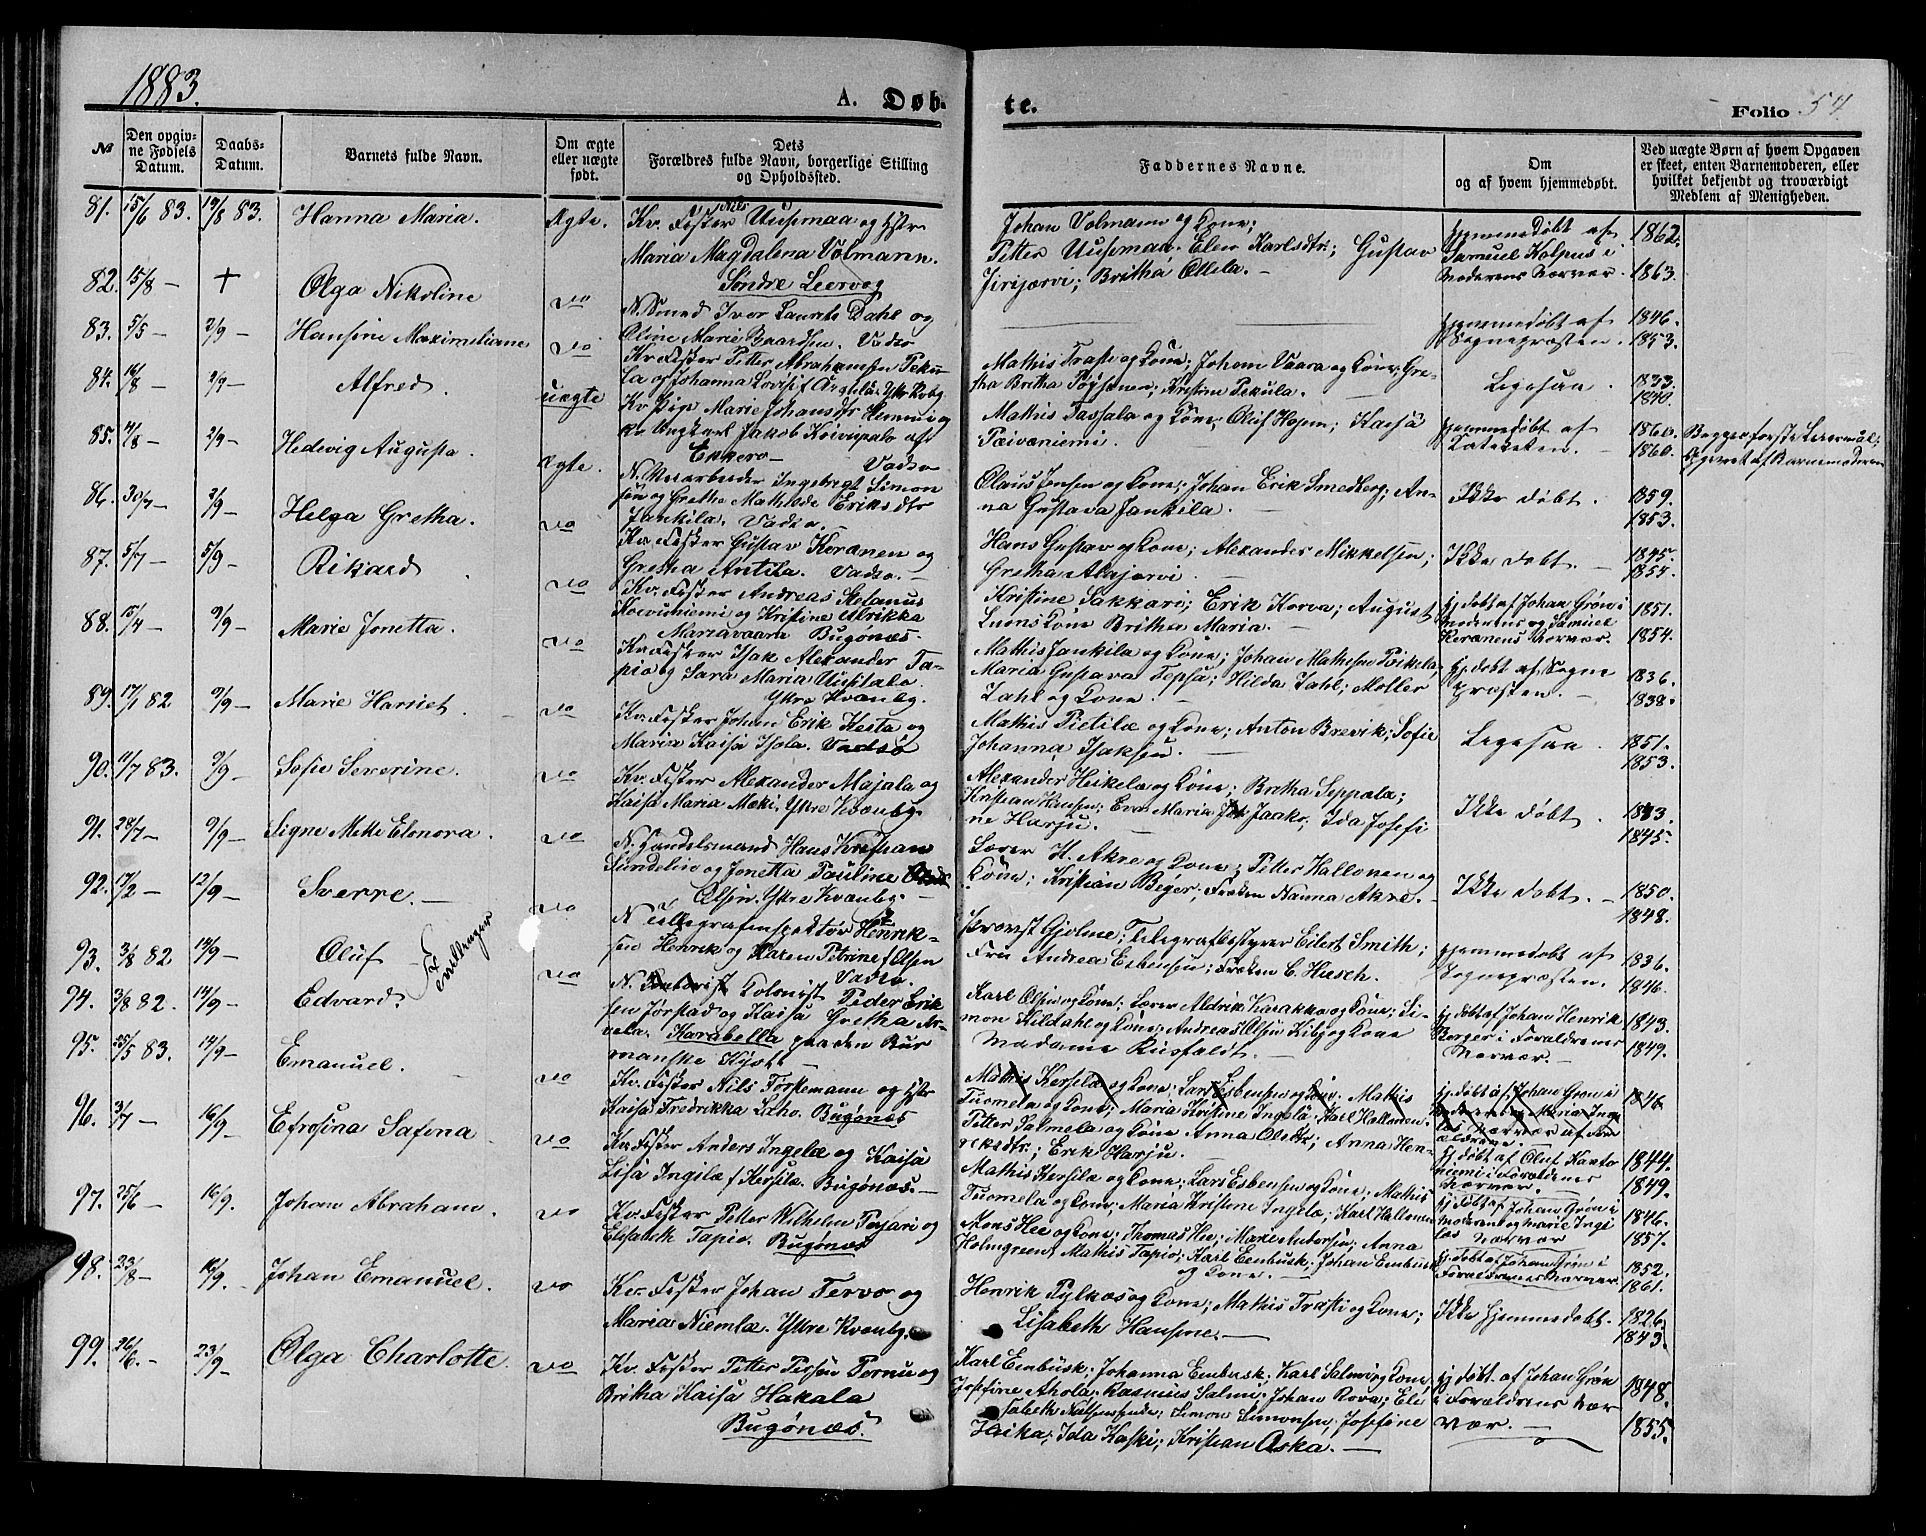 1883.
A. Døb-
te.
Folio 54.
№
Den opgiv-
ne Fødsels
Datum.
Daabs-
Datum.
Barnets fulde Navn.
Om ægte
eller uægte
født.
Dets
Forældres fulde Navn, borgerlige Stilling
og Opholdssted.
Faddernes Navne.
Om
og af hvem hjemmedøbt.
Ved uægte Børn af hvem Opgaven
er skeet, enten Barnemoderen, eller
hvilket bekjendt og troværdigt
Medlem af Menigheden.
81. 15/6 83. 19/8 83. Hanna Maria. Ægte.
Kv. Fisker Nils Uusimaa og Hstr
Maria Magdalena Volmann.
Søndre Leervog
Johan Volmann og Kone;
Petter Uusimaa. Elen Karlsdtr; Gustav
Jirijærvi; Britha Ollila. –
Hjemmedøbt af
Samuel Kolpus i
Moderens Nærvær.
1862.
1863.
82. 15/8 – + Olga Nikoline do
N. Smed Ivar Laurits Dahl og
Oline Marie Baardsen. Vadsø
Hjemmedøbt af
Sognepræsten.
1846.
1853.
83. 5/5 – 2/9 – Hansine Maximiliane do
Kv. Fisker Petter Abrahamsen Peku
la og Johanna Lovise Ylitr. Kvbg
Mathis Trasti og Kone; Johan Vaara og Kone; Gre-
tha Britha Pøysenen; Kristine Pekula.
Ligesaa.
1833.
1840.
84. 16/8 – 2/9 – Alfred. uægte
Kv. Pige Marie Johansdtr Hennui og
Kv. Ungkarl Jakob Koivupalo af
Ekkerø – Vadsø
Mathis Tassala og Kone, Oluf Hojem; Kaisa
Paivaniemi.
Hjemmedøbt af
Kateketen.
1860.
1860.
Begges første Leiermaal;
Opgivet af Barnemoderen
85. 4/8 – 2/9 – Hedevig Augusta. Ægte.
N. Arbeider Ingebrigt Simon
sen og Grethe Mathilde Eriksdtr
Jankila. Vadsø.
Olaus Jensen og Kone; Johan Erik Smedberg; An-
na Gustava Jankila.
Ikke døbt.
1859.
1853.
86. 30/7 – 2/9 – Helga Gretha. do
Kv. Fisker Gustav Keranen og
Gretha Antila. Vadsø. –
Hans Gustav og Kone; Alexander Mikkelsen;
Gretha Alajærvi.
Ikke døbt. –
1845.
1854.
87. 5/7 – 5/9 – Rikard do
Kv. Fisker Andreas Stefanus
Koivuniemi og Kristine Ulrikka
Mariavaara Bugønæs.
Kristine Sakkari; Erik Korva; August
Luons Kone Britha Maria. –
Hj. døbt af Johan Grøn i
Moderens og Samuel
Keranens Nærvær.
1851.
1854.
88. 15/4 – 9/9 – Marie Jonetta. do
Kv. Fisker Isak Alexander Ta-
pio og Sara Maria Uusitalo.
Ytre Kvænbg.
Mathis Jankila og Kone; Johan Mathisen Pikela,
Maria Gustava Tepsa; Hilda Dahl; Møller
Dahl og Kone.
Hj. døbt af Sogne
præsten. –
1836.
1838.
89. 17/1 82 9/9 – Marie Harriet. do
Kv. Fisker Johan Erik Hesta og
Maria Kaisa Isola. Vadsø
Mathis Pietilæ og Kone; Anton Brevik; Sofie
Johanna Isaksen.
Ligesaa.
1851.
1853.
90. 11/7 83. 9/9 – Sofie Severine. do
Kv. Fisker Alexander Majala og
Kaisa Maria Mæki. Ytre Kvænbg.
Alexander Heikela og Kone; Britha Seppala;
Kristian Hansen; Eva Maria Jaako; Ida Josefi
ne Harju. –
Ikke døbt.
1843.
1845.
91. 28/7 – 9/9 – Signe Mette Elonora. do
N. Handelsmand Hans Kristian
Lundelio og Jonetta Pauline
Olsen. Ytre Kvænbg. –
Lærer H. Akre og Kone; Petter Hallonen og
Kone; Kristian Beger; Frøken Nanna Akre. –
Ikke døbt. –
1850.
1848.
92. 17/2 – 12/9 – Sverre. – do
N. Telegrafinspektør Henrik-
sen Henrik og Karen Petrine f Olsen
Vadsø.
Provst Gjølme; Telegrafbestyrer Eilert Smith;
Fru Andrea Esbensen; Frøken C. Huesch.
Hjemmedøbt af
Sognepræsten.
1836.
1846.
93. 3/8 82 14/9 – Oluf
Tvillinger
94. 3/8 82. 14/9 – Edvard. do
N. Kolonist Peder Erik
sen Jørstad og Kaisa Gretha Ar-
vela. Karabella paa den Rur
manske Kyst. –
Karl Olsen og Kone; Lærer Aldrik Karakka og Kone; Si-
mon Kildahl og Kone; Andreas Olsen Kiby og Kone
Madame Rusfaldt. –
Hj. døbt af Johan Henrik
Borger i Forældrenes
Nærvær. –
1843.
1849.
95. 25/5 83. 14/9 – Emanuel. – do
Kv. Fisker Nils Torkemann og Hstr
Kaisa Fredrikka Leho. Bugønæs
Mathis Kersila og Kone; Lars Esbensen og Kone; Mathis
Tuomela og Kone; Maria Kristine Ingela; Karl Hallonen.
Petter Salmela og Kone Anna Olsdtr; Anna Hen-
riksdtr; Erik Harju. –
1846
Hj. døbt af Oluf Kantor
niemi i Forældrenes
Nærvær. –
1844.
1849.
96. 3/7 – 16/9 – Efrosina Safina do
Kv. Fisker Anders Ingelæ og Kaisa
Lisa Ingilæ f Kersilæ. Bugønæs. –
Mathis Kersilæ og Kone; Lars Esbensen og Kone; Mathis
Tuomela og Kone; Maria Kristine Ingelæ; Karl Hallonen
Hj. døbt af Johan Grøn i
Moderens og Marie Ingi
læs Nærvær
1846.
1857.
97. 25/6 – 16/9. Johan Abraham. do
Kv. Fisker Petter Wilhelm Pesari og
Elisabeth Tapio. Bugønæs
Mons Hee og Kone; Thomas Hee; Marie Andersen; Anna
Holmgren; Mathis Tapio; Karl Eenbusk; Johan Eenbusk
og Kone. –
Hj. døbt af Johan Grøn i
Forældrenes Nærvær.
1852.
1861.
98. 23/8 – 16/9. Johan Emanuel. do
Kv. Fisker Johan Tervo og
Maria Niemlæ. Ytre Kvænbg.
Henrik Pylkæs og Kone; Mathis Trasti og Kone;
Lisabeth Hansine. –
Ikke hjemmedøbt.
1826.
1843.
99. 26/6. – 23/9 – Olga Charlotte. do
Kv. Fisker Petter Persen Pernu og
Britha Kaisa Hakala
Bugønæs.
Karl Eenbusk; Johanna Eenbusk; Karl Salmi og Kone
Josefine Ahola; Rasmus Salmi; Johan Rova; Eli
sabeth Nilsensende; Simon Simonsen; Josefine
Heika; Ida Kaski; Kristian Aska. –
Hj. døbt af Johan Grøn
i Forældrenes Nær
vær. –
1848.
1855.